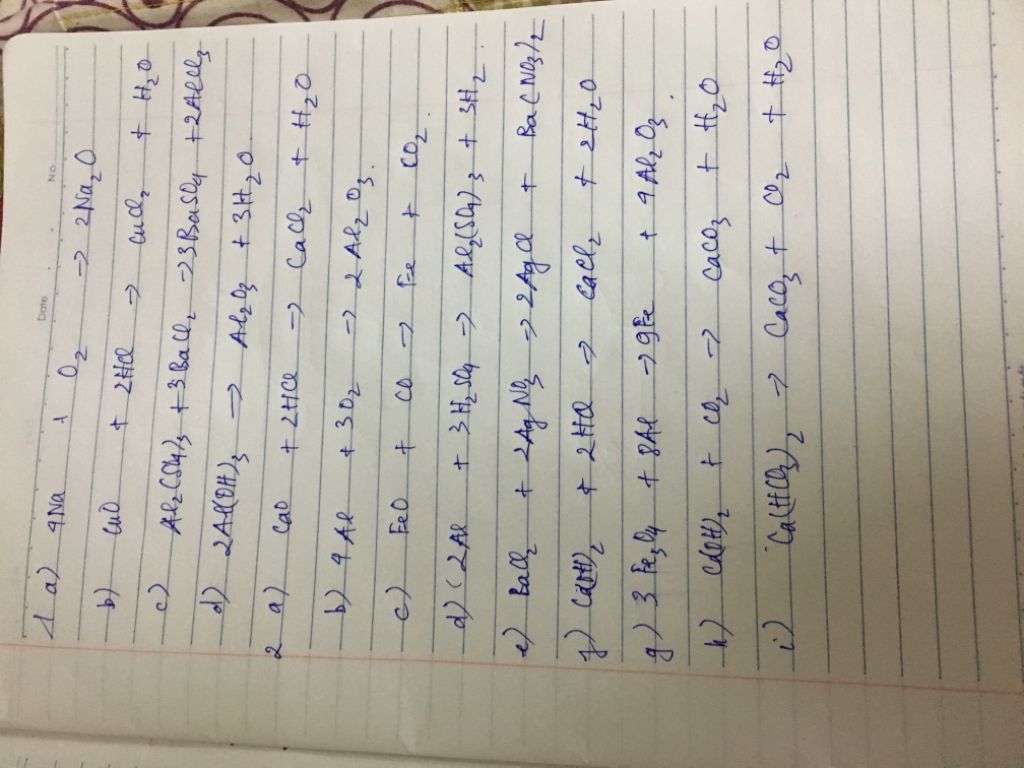 No.
Date
1 a) 4Na + O2 → 2Na2O
b) CuO + 2HCl → CuCl2 + H2O
c) Al2(SO4)3 + 3BaCl2 → 3BaSO4 + 2AlCl3
d) 2Al(OH)3 → Al2O3 + 3H2O
2 a) CaO + 2HCl → CaCl2 + H2O
b) 4Al + 3O2 → 2Al2O3.
c) FeO + CO → Fe + CO2.
d) 2Al + 3H2SO4 → Al2(SO4)3 + 3H2.
e) BaCl2 + 2AgNO3 → 2AgCl + Ba(NO3)2
f) Ca(OH)2 + 2HCl → CaCl2 + 2H2O
g) 3Fe3O4 + 8Al → 9Fe + 4Al2O3.
h) Ca(OH)2 + CO2 → CaCO3 + H2O
i) Ca(HCO3)2 → CaCO3 + CO2 + H2O